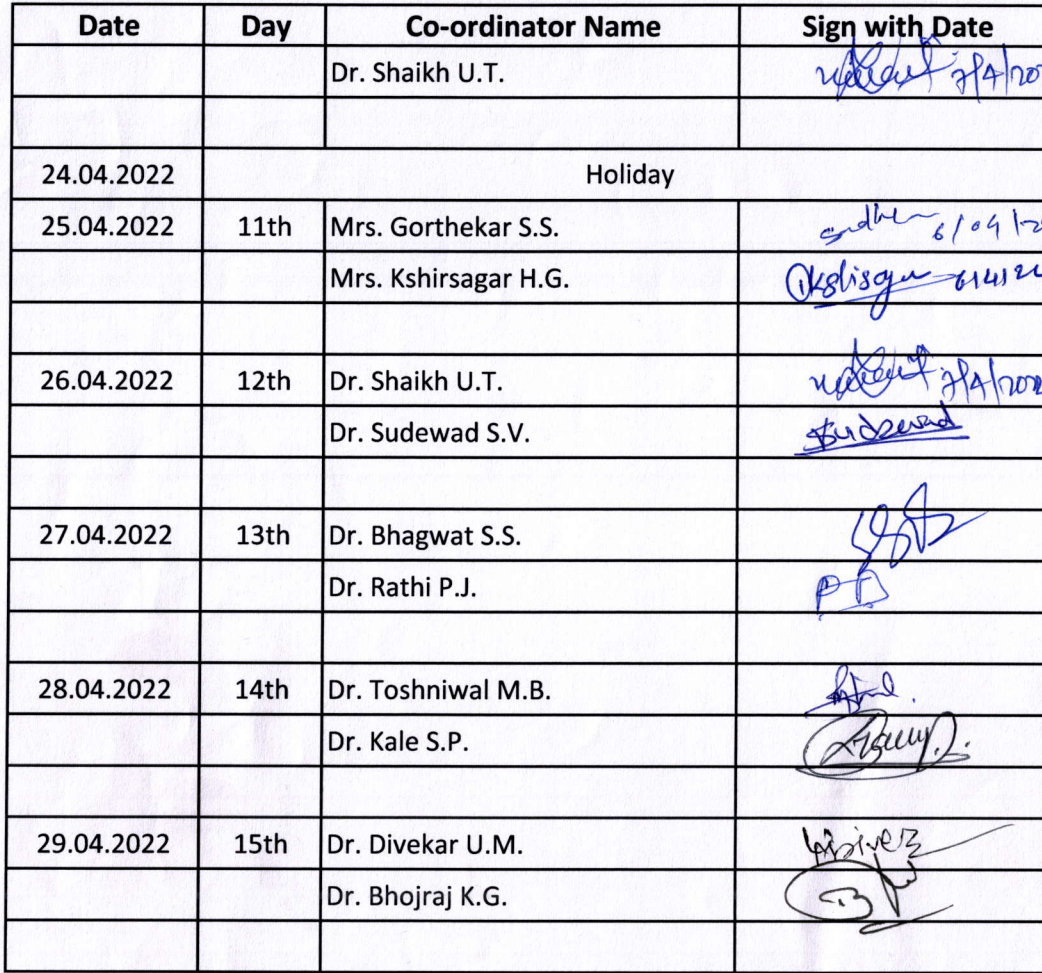 Date Day Co-ordinator Name Sign with Date
Dr. Shaikh U.T. 7/4/202
24.04.2022 Holiday
25.04.2022 11th Mrs. Gorthekar S.S. 6/04/2
Mrs. Kshirsagar H.G. 6/4/22
26.04.2022 12th Dr. Shaikh U.T. 7/4/202
Dr. Sudewad S.V. Sudewad
27.04.2022 13th Dr. Bhagwat S.S.
Dr. Rathi P.J.
28.04.2022 14th Dr. Toshniwal M.B.
Dr. Kale S.P.
29.04.2022 15th Dr. Divekar U.M.
Dr. Bhojraj K.G.